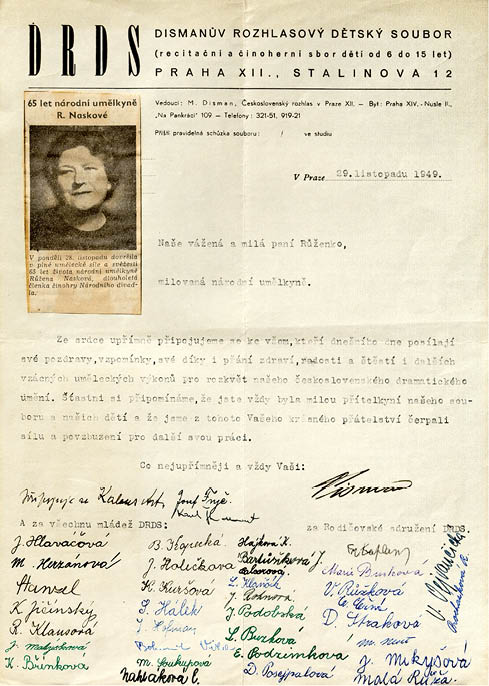 DRDS
DISMANŮV ROZHLASOVÝ DĚTSKÝ SOUBOR
(recitační a činoherní sbor dětí od 6 do 15 let)
PRAHA XII., STALINOVA 12
Vedoucí: M. Disman, Československý rozhlas v Praze XII. — Byt: Praha XIV.-Nusle II.,
„Na Pankráci" 109 — Telefony: 321-51, 919-21
Příští pravidelná schůzka souboru: / ve studiu
V Praze 29.listopadu 1949.
65 let národní umělkyně
R. Naskové
V pondělí 28. listopadu dovršila
v plné umělecké síle a svěžesti
65 let života národní umělkyně
Růžena Nasková, dlouholetá
členka činohry Národního divad-
la.
Naše vážená a milá paní Růženko,
milovaná národní umělkyně.
Ze srdce upřímně připojujeme se ke všem,kteří dnešního dne posílají
své pozdravy,vzpomínky,své díky i přání zdraví,radosti a štěstí i dalších
vzácných uměleckých výkonů pro rozkvět našeho československého dramatického
umění. Šťastni si připomínáme,že jste vždy byla milou přítelkyní našeho sou-
boru a našich dětí a že jsme z tohoto Vašeho krásného přátelství čerpali
sílu a povzbuzení pro další svou práci.
Co nejupřímněji a vždy Vaši:
Připojuje se
A za všechnu mládež DRDS:
za Rodičovské sdružení DRDS.
J. Hlaváčová
M. Heřmanová
K. Jičínský
R. Klausová
J. Matyášková
K. Břínková
B. Kopecká
J. Holečková
K. Kuršová
S. Hálek
J. Holman
M. Soukupová
Hájková K.
Bartůňková J.
J. Podobská
L. Burková
E. Podzimková
D. Pospíšalová
Marie Burková
V. Růžková
D. Straková
J. Mikyšová
Malá Růža